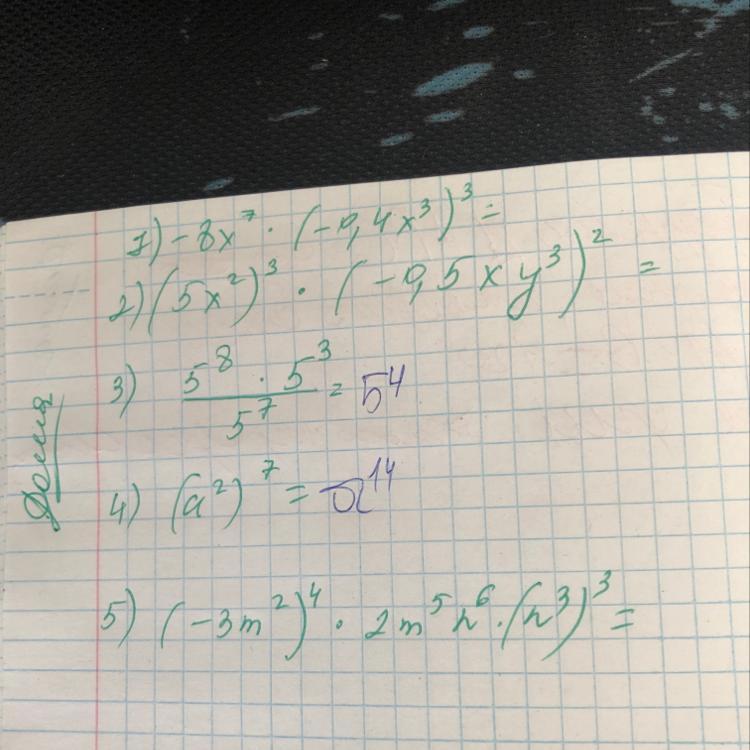 1) -8x⁷ · (-0,4x³)³ =
2) (5x²)³ · (-0,5xy³)² =
3) 5⁸ · 5³ / 5⁷ = 5⁴
4) (a²)⁷ = a¹⁴
5) (-3m²)⁴ · 2m⁵n⁶ · (n³)³ =